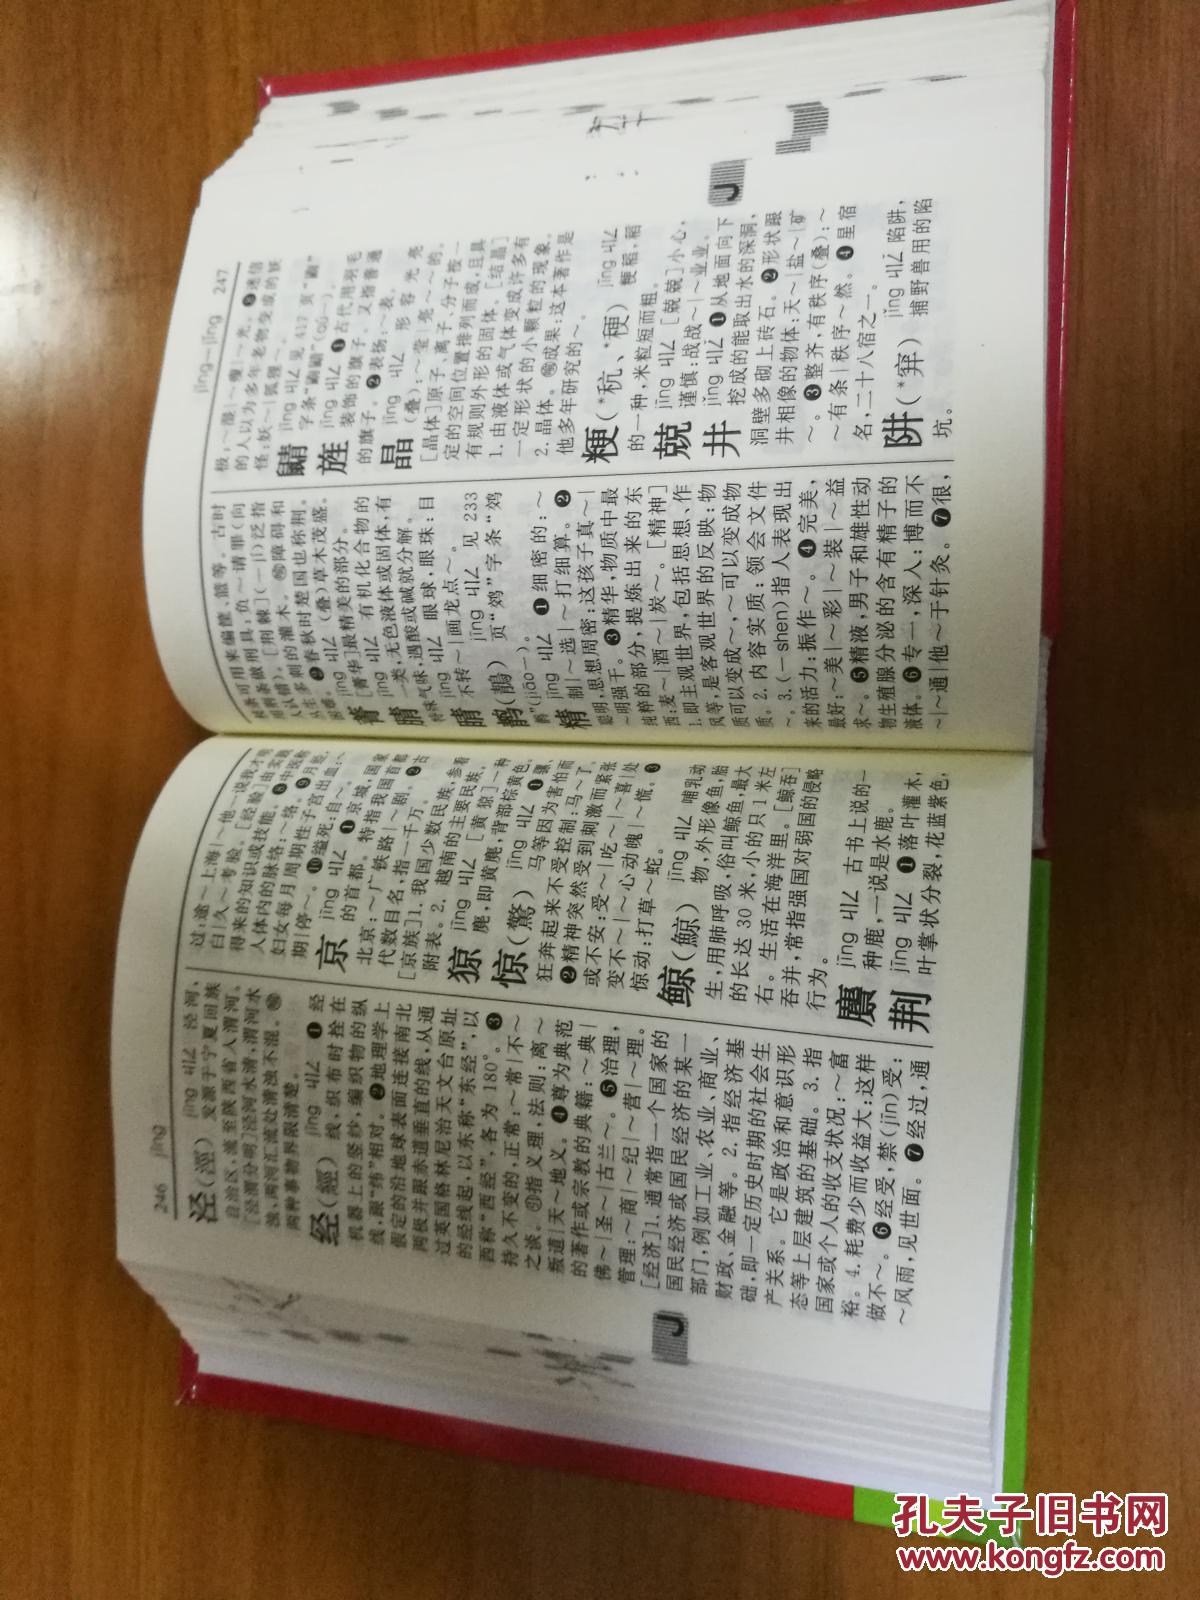 246 jīng
泾(涇) jīng ㄐㄧㄥ 泾河,
发源于宁夏回族
自治区,流至陕西省入渭河。
[泾渭分明]泾河水清,渭河水
浊,两河汇流处清浊不混。㊀
两种事物界限清楚。
经(經) jīng ㄐㄧㄥ ❶经
线,织布时拴在
机器上的竖纱,编织物的纵
线,跟“纬”相对。❷地理学上
假定的沿地球表面连接南北
两极并跟赤道垂直的线,从通
过英国格林尼治天文台原址
的经线起,以东称“东经”,以
西称“西经”,各为180°。❸
持久不变的,正常:~常|不~
之谈。㉑指义理,法则:离~
叛道|天~地义。❹尊为典范
的著作或宗教的典籍:~典|
佛~|圣~|古兰~。❺治理,
管理:~商|~纪|~营|~理。
[经济]1.通常指一个国家的
国民经济或国民经济的某一
部门,例如工业、农业、商业、
财政、金融等。2.指经济基
础,即一定历史时期的社会生
产关系。它是政治和意识形
态等上层建筑的基础。3.指
国家或个人的收支状况:~富
裕。4.耗费少而收益大:这样
做不~。❻经受,禁(jīn)受:
~风雨,见世面。❼经过,通
过:途~上海|~他一说我才明
白|久~考验。[经验]由实践
得来的知识或技能。❽中医称
人体内的脉络:~络。❾月经,
妇女每月周期性子宫出血:~
期|停~。❿缢死:自~。
京 jīng ㄐㄧㄥ ❶京城,国家
的首都。特指我国首都
北京:~广铁路|~剧。❷古
代数目名,指一千万。
[京族]1.我国少数民族,参看
附表。2.越南的主要民族。
猄 jīng ㄐㄧㄥ [黄猄]一种
麂,即黄麂,背部棕黄色。
惊(驚) jīng ㄐㄧㄥ ❶骡、
马等因为害怕而
狂奔起来不受控制:马~了。
❷精神突然受到刺激而紧张
或不安:受~|吃~|~喜|处
变不~|~心动魄|~慌。❸
惊动:打草~蛇。
鲸(鯨) jīng ㄐㄧㄥ 哺乳动
物,外形像鱼,胎
生,用肺呼吸,俗叫鲸鱼,最大
的长达30米,小的只1米左
右。生活在海洋里。[鲸吞]
吞并,常指强国对弱国的侵略
行为。
麖 jīng ㄐㄧㄥ 古书上说的一
种鹿,一说是水鹿。
荆 jīng ㄐㄧㄥ ❶落叶灌木,
叶掌状分裂,花蓝紫色,
J
jīng-jǐng 247
枝条可用来编筐、篮等。古时
用荆条做刑具:负~请罪(向
人认错)。[荆棘](-jí)泛指
丛生多刺的灌木。㊀障碍和
困难。❷春秋时楚国也称荆。
菁 jīng ㄐㄧㄥ (叠)草木茂盛。
[菁华]最精美的部分。
腈 jīng ㄐㄧㄥ 有机化合物的
一类,无色液体或固体,有
特殊气味,遇酸或碱就分解。
睛 jīng ㄐㄧㄥ 眼球,眼珠:目
不转~|画龙点~。
鹡(鶄) jīng ㄐㄧㄥ 见233
页“䴔”字条“䴔
鶄”(jiāo-)。
精 jīng ㄐㄧㄥ ❶细密的:~
制|~选|~打细算。❷
聪明,思想周密:这孩子真~|
~明强干。❸精华,物质中最
纯粹的部分,提炼出来的东
西:麦~|酒~|炭~。[精神]
1.即主观世界,包括思想、作
风等,是客观世界的反映:物
质可以变成~,~可以变成物
质。2.内容实质:领会文件
~。3.(-shen)指人表现出
来的活力:振作~。❹完美,
最好:~美|~彩|~装|~益
求~。❺精液,男子和雄性动
物生殖腺分泌的含有精子的
液体。❻专一,深入:博而不
~|~通|他~于针灸。❼很,
极:~湿|~瘦|~光。❽迷信
的人以为多年老物变成的妖
怪:妖~|狐狸~。
鼱 jīng ㄐㄧㄥ 见417页“鼩”
字条“鼩鼱”(qú-)。
旌 jīng ㄐㄧㄥ ❶古代用羽毛
装饰的旗子。又指普通
的旗子。❷表扬:~表。
晶 jīng ㄐㄧㄥ 形容光亮
(叠):~莹|亮~~的。
[晶体]原子、离子、分子按一
定的空间位置排列而成,且具
有规则外形的固体。[结晶]
1.由液体或气体变成许多有
一定形状的小颗粒的现象。
2.晶体。㊀成果:这本著作是
他多年研究的~。
粳(*秔、*稉) jīng ㄐㄧㄥ
粳稻,稻
的一种,米粒短而粗。
兢 jīng ㄐㄧㄥ [兢兢]小心,
谨慎:战战~|~业业。
井 jǐng ㄐㄧㄥˇ ❶从地面向下
挖成的能取出水的深洞,
洞壁多砌上砖石。❷形状跟
井相像的物体:天~|盐~|矿
~。❸整齐,有秩序(叠):~
~有条|秩序~然。❹星宿
名,二十八宿之一。
阱(*穽) jǐng ㄐㄧㄥˇ 陷阱,
捕野兽用的陷
坑。
J
孔夫子旧书网
www.kongfz.com